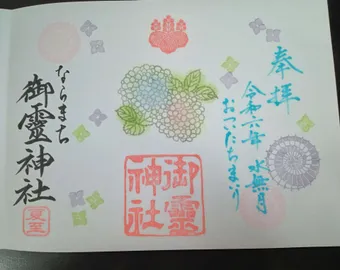 奉拝
令和六年 水無月
おついたちまいり
御霊神社
ならまち
御靈神社
夏至